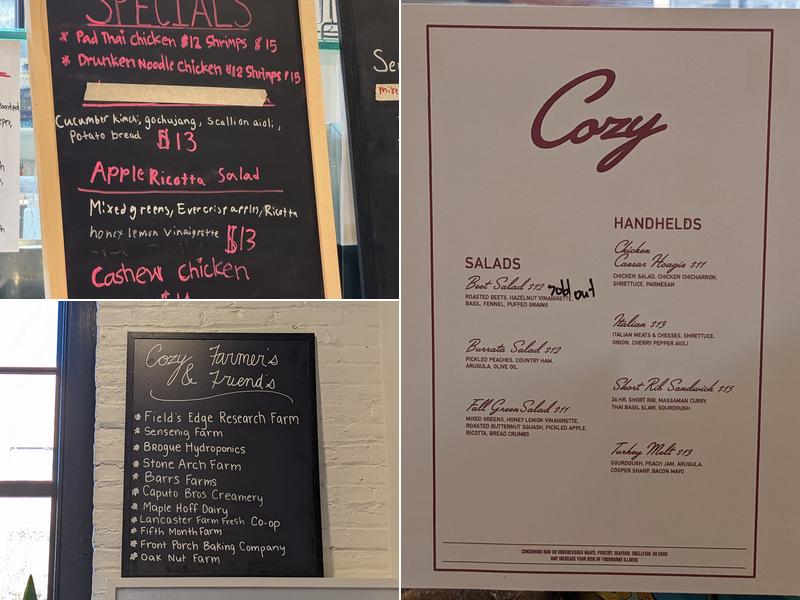 SPECIALS
* Pad Thai Chicken $12 Shrimps $15
* Drunken Noodle Chicken $12 Shrimps $15
Cucumber kimchi, gochujang, scallion aioli,
Potato bread $13
Apple Ricotta Salad
Mixed greens, Evercrisp apples, Ricotta
honey lemon Vinaigrette $13
Cashew Chicken
Cozy Farmer's
& Friend's
* Field's Edge Research Farm
* Sensenig Farm
* Brogue Hydroponics
* Stone Arch Farm
* Barrs Farms
* Caputo Bros Creamery
* Maple Hoff Dairy
* Lancaster Farm Fresh Co-op
* Fifth Month Farm
* Front Porch Baking Company
* Oak Nut Farm
Cozy
SALADS
Beet Salad $12 sold out
ROASTED BEETS, HAZELNUT VINAIGRETTE,
BASIL, FENNEL, PUFFED GRAINS
Burrata Salad $12
PICKLED PEACHES, COUNTRY HAM,
ARUGULA, OLIVE OIL
Fall Green Salad $11
MIXED GREENS, HONEY LEMON VINAIGRETTE,
ROASTED BUTTERNUT SQUASH, PICKLED APPLE,
RICOTTA, BREAD CRUMBS
HANDHELDS
Chicken
Caesar Hoagie $11
CHICKEN SALAD, CHICKEN CHICHARRÓN,
SHRETTUCE, PARMESAN
Italian $13
ITALIAN MEATS & CHEESES, SHRETTUCE,
ONION, CHERRY PEPPER AIOLI
Short Rib Sandwich $15
24 HR. SHORT RIB, MASSAMAN CURRY,
THAI BASIL SLAW, SOURDOUGH
Turkey Melt $13
SOURDOUGH, PEACH JAM, ARUGULA,
COOPER SHARP, BACON MAYO
CONSUMING RAW OR UNDERCOOKED MEATS, POULTRY, SEAFOOD, SHELLFISH, OR EGGS
MAY INCREASE YOUR RISK OF FOODBORNE ILLNESS